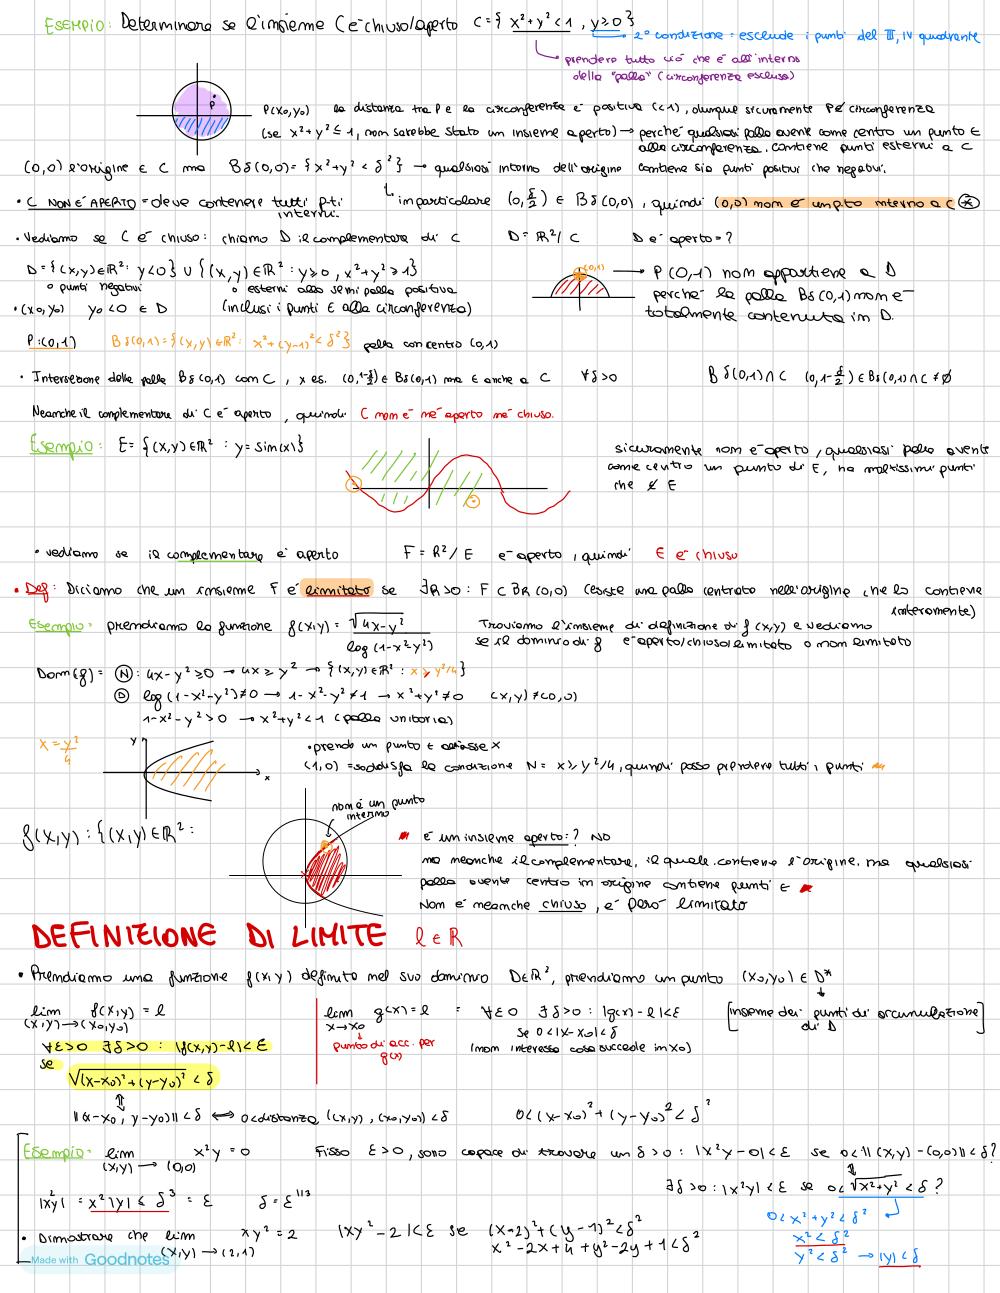 ESEMPIO: Determinare se l'insieme C è chiuso/aperto C={ x²+y²<1 , y≥0 }
2° condizione = esclude i punti del III, IV quadrante
prendere tutto ciò che è all'interno
della "palla" (circonferenza esclusa)
P
P(x₀,y₀) la distanza tra P e la circonferenza è positiva (<1), dunque sicuramente P∉ circonferenza
(se x²+y² ≤ 1, non sarebbe stato un insieme aperto) → perché qualsiasi palla avente come centro un punto ∈
alla circonferenza contiene punti esterni a C
(0,0) l'origine ∈ C ma Bδ(0,0)= {x²+y² < δ²} → qualsiasi intorno dell'origine contiene sia punti positivi che negativi.
• C NON È APERTO = deve contenere tutti p.ti
interni.
in particolare (0, δ/2) ∈ Bδ(0,0), quindi (0,0) non è un p.to interno a C
• Vediamo se C è chiuso: chiamo D il complementare di C D= ℝ²/C D è aperto=?
D={(x,y)∈ℝ²: y<0} ∪ {(x,y)∈ℝ²: y≥0, x²+y²≥1}
punti negativi esterni alla semi palla positiva
• (x₀,y₀) y₀<0 ∈ D (inclusi i punti ∈ alla circonferenza)
(0,1)
P(0,1) non appartiene a D
perché la palla Bδ(0,1) non è
totalmente contenuta in D.
P:(0,1) Bδ(0,1)={(x,y)∈ℝ²: x²+(y-1)²<δ²} palla con centro (0,1)
• Intersezione della palla Bδ(0,1) con C, x es. (0,1-δ/2)∈ Bδ(0,1) ma ∈ anche a C ∀δ>0 Bδ(0,1)∩C (0,1-δ/2)∈Bδ(0,1)∩C≠∅
Neanche il complementare di C è aperto, quindi C non è né aperto né chiuso.
Esempio: E= {(x,y)∈ℝ² : y=sin(x)}
sicuramente non è aperto, qualsiasi palla avente
come centro un punto di E, ha moltissimi punti
che ∉ E
• vediamo se il complementare è aperto F = ℝ²/E è aperto, quindi E è chiuso
• Def: Diciamo che un insieme F è limitato se ∃R>0: F⊂B_R(0,0) (esiste una palla centrata nell'origine che lo contiene
interamente)
Esempio: prendiamo la funzione f(x,y)= √(4x-y²) / log(1-x²-y²)
Troviamo l'insieme di definizione di f(x,y) e vediamo
se il dominio di f è aperto/chiuso/limitato o non limitato
Dom(f)= (N): 4x-y²≥0 → 4x≥y² → {(x,y)∈ℝ²: x≥y²/4}
(D) log(1-x²-y²)≠0 → 1-x²-y²≠1 → x²+y²≠0 (x,y)≠(0,0)
1-x²-y²>0 → x²+y²<1 (palla unitaria)
x = y²/4
y
x
• prendo un punto ∈ all'asse x
(1,0) = soddisfa la condizione N= x≥y²/4, quindi posso prendere tutti i punti
f(x,y): {(x,y)∈ℝ²:
non è un punto
interno
È un insieme aperto:? NO
ma neanche il complementare, il quale contiene l'origine, ma qualsiasi
palla avente centro in origine contiene punti ∈
Non è neanche chiuso, è però limitato
DEFINIZIONE DI LIMITE l∈ℝ
• Prendiamo una funzione f(x,y) definita nel suo dominio D∈ℝ², prendiamo un punto (x₀,y₀) ∈ D*
[insieme dei punti di accumulazione]
di D
lim f(x,y) = l
(x,y)→(x₀,y₀)
∀ε>0 ∃δ>0: |f(x,y)-l|<ε
se
√((x-x₀)²+(y-y₀)²) < δ
lim g(x)=l = ∀ε>0 ∃δ>0: |g(x)-l|<ε
x→x₀ se 0<|x-x₀|<δ
punto di acc. per (non interessa cosa succede in x₀)
g(x)
||(x-x₀, y-y₀)||<δ ⟺ 0<distanza ((x,y),(x₀,y₀))<δ 0<(x-x₀)²+(y-y₀)²<δ²
Esempio: lim x²y = 0 Fisso ε>0, sono capace di trovare un δ>0: |x²y-0|<ε se 0<||(x,y)-(0,0)||<δ?
(x,y)→(0,0)
∃δ>0: |x²y|<ε se 0<√(x²+y²)<δ?
|x²y| = x²|y| ≤ δ³ = ε δ=ε^(1/3)
0<x²+y²<δ²
x²<δ²
y²<δ² → |y|<δ
• Dimostrare che lim xy²=2 |xy²-2|<ε se (x-2)²+(y-1)²<δ²
(x,y)→(2,1) x²-2x+4+y²-2y+1<δ²
Made with Goodnotes